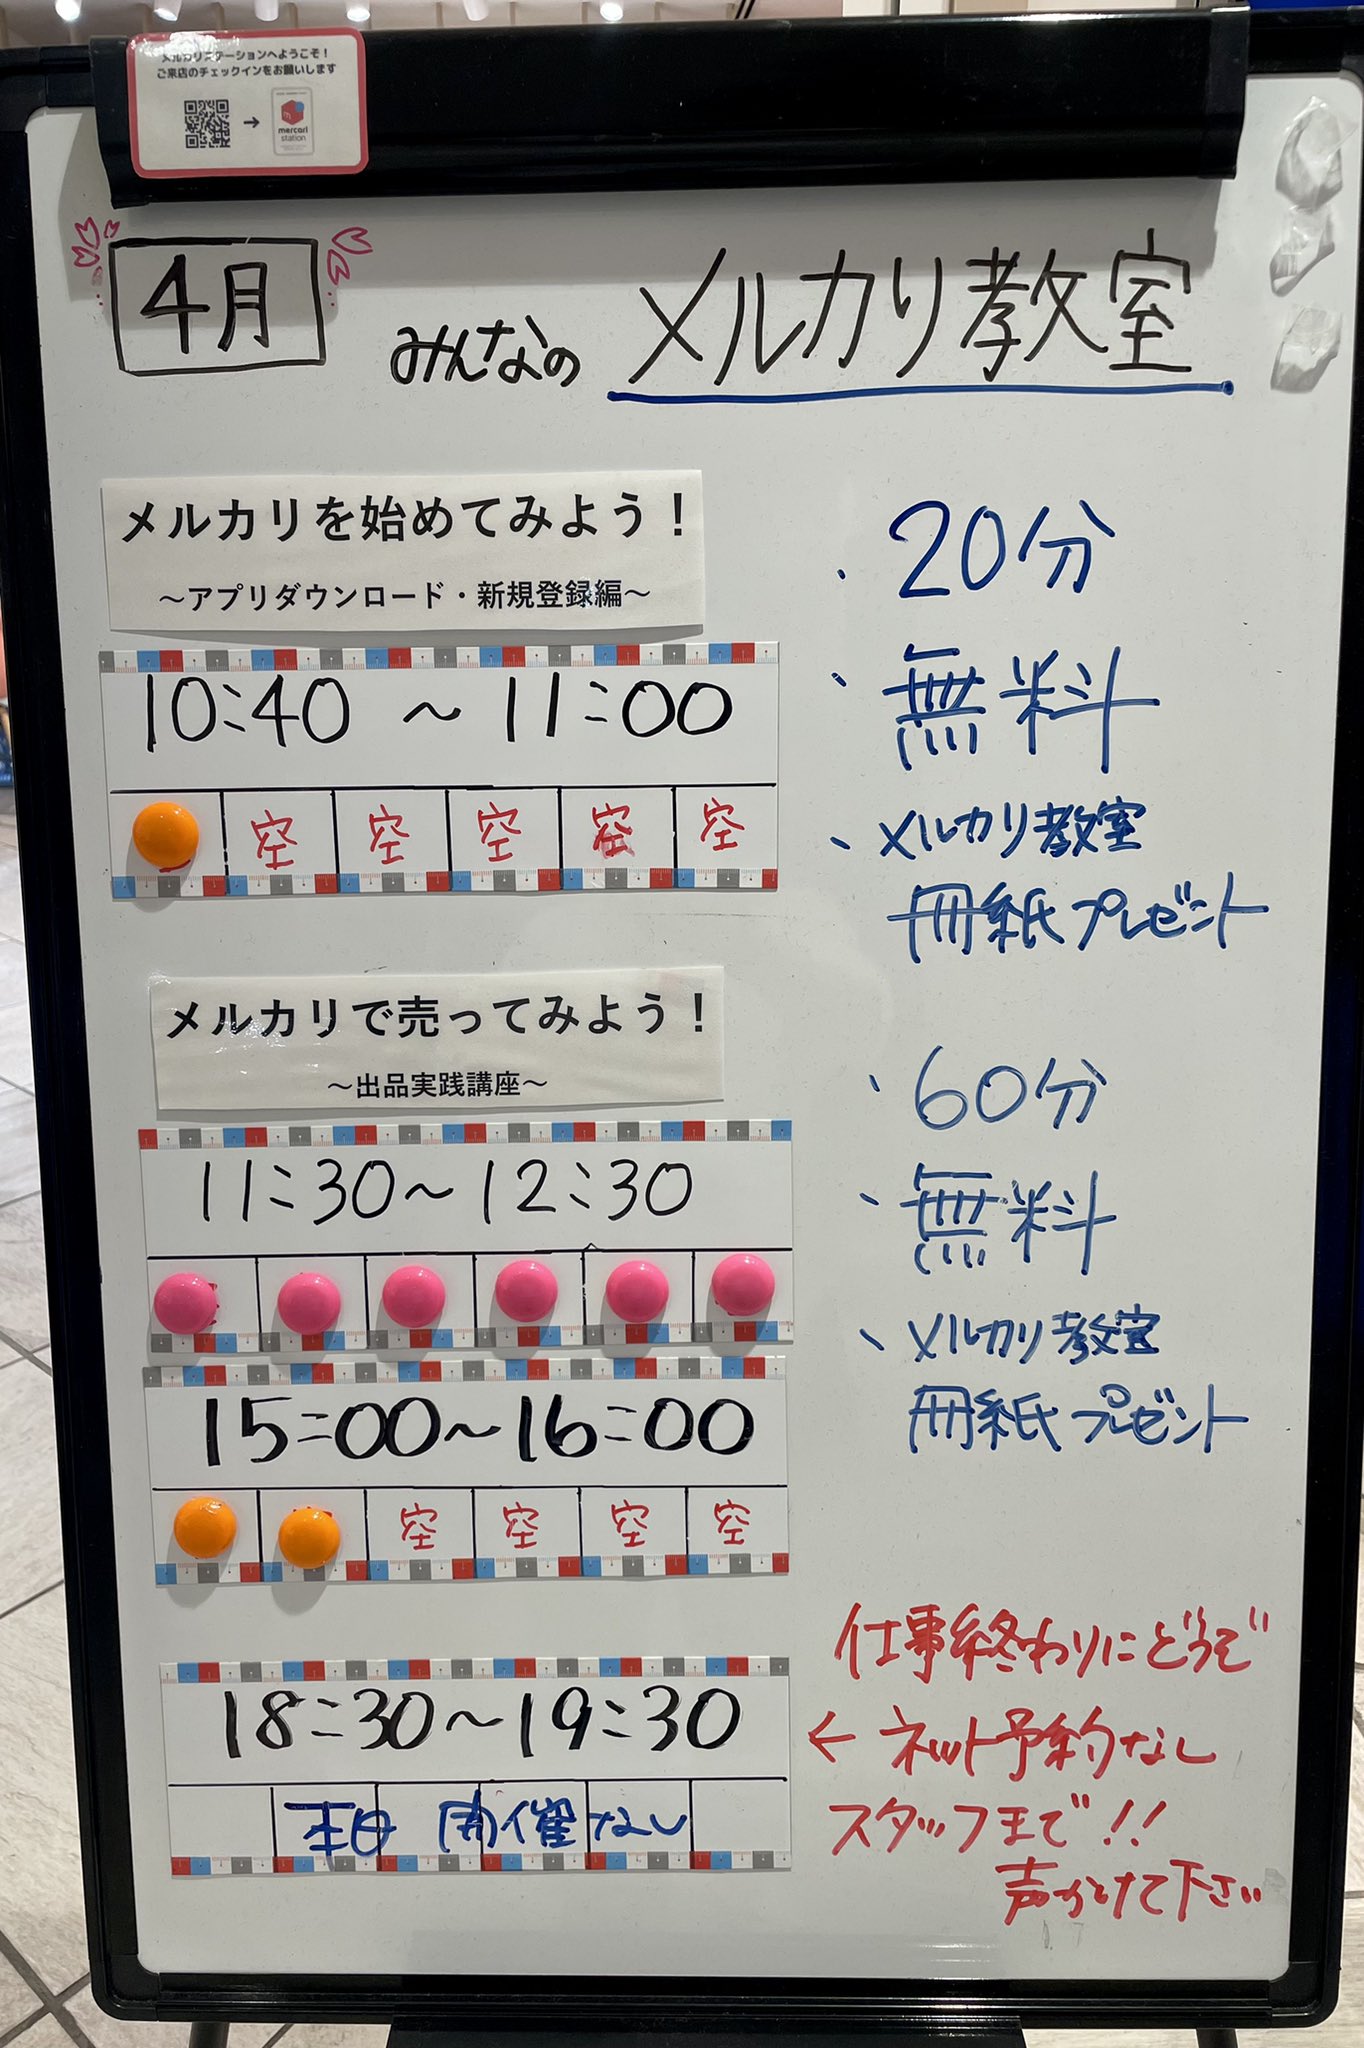 メルカリステーションへようこそ！
ご来店のチェックインをお願いします
→
mercari
station
4月
みんなの メルカリ教室
メルカリを始めてみよう！
～アプリダウンロード・新規登録編～
10:40 ～ 11:00
空 空 空 空 空
・20分
・無料
・メルカリ教室
冊紙プレゼント
メルカリで売ってみよう！
～出品実践講座～
11:30～12:30
15:00～16:00
空 空 空 空
・60分
・無料
・メルカリ教室
冊紙プレゼント
18:30～19:30
本日 開催なし
仕事終わりにどうぞ
← ネット予約なし
スタッフまで!!
声かけて下さい